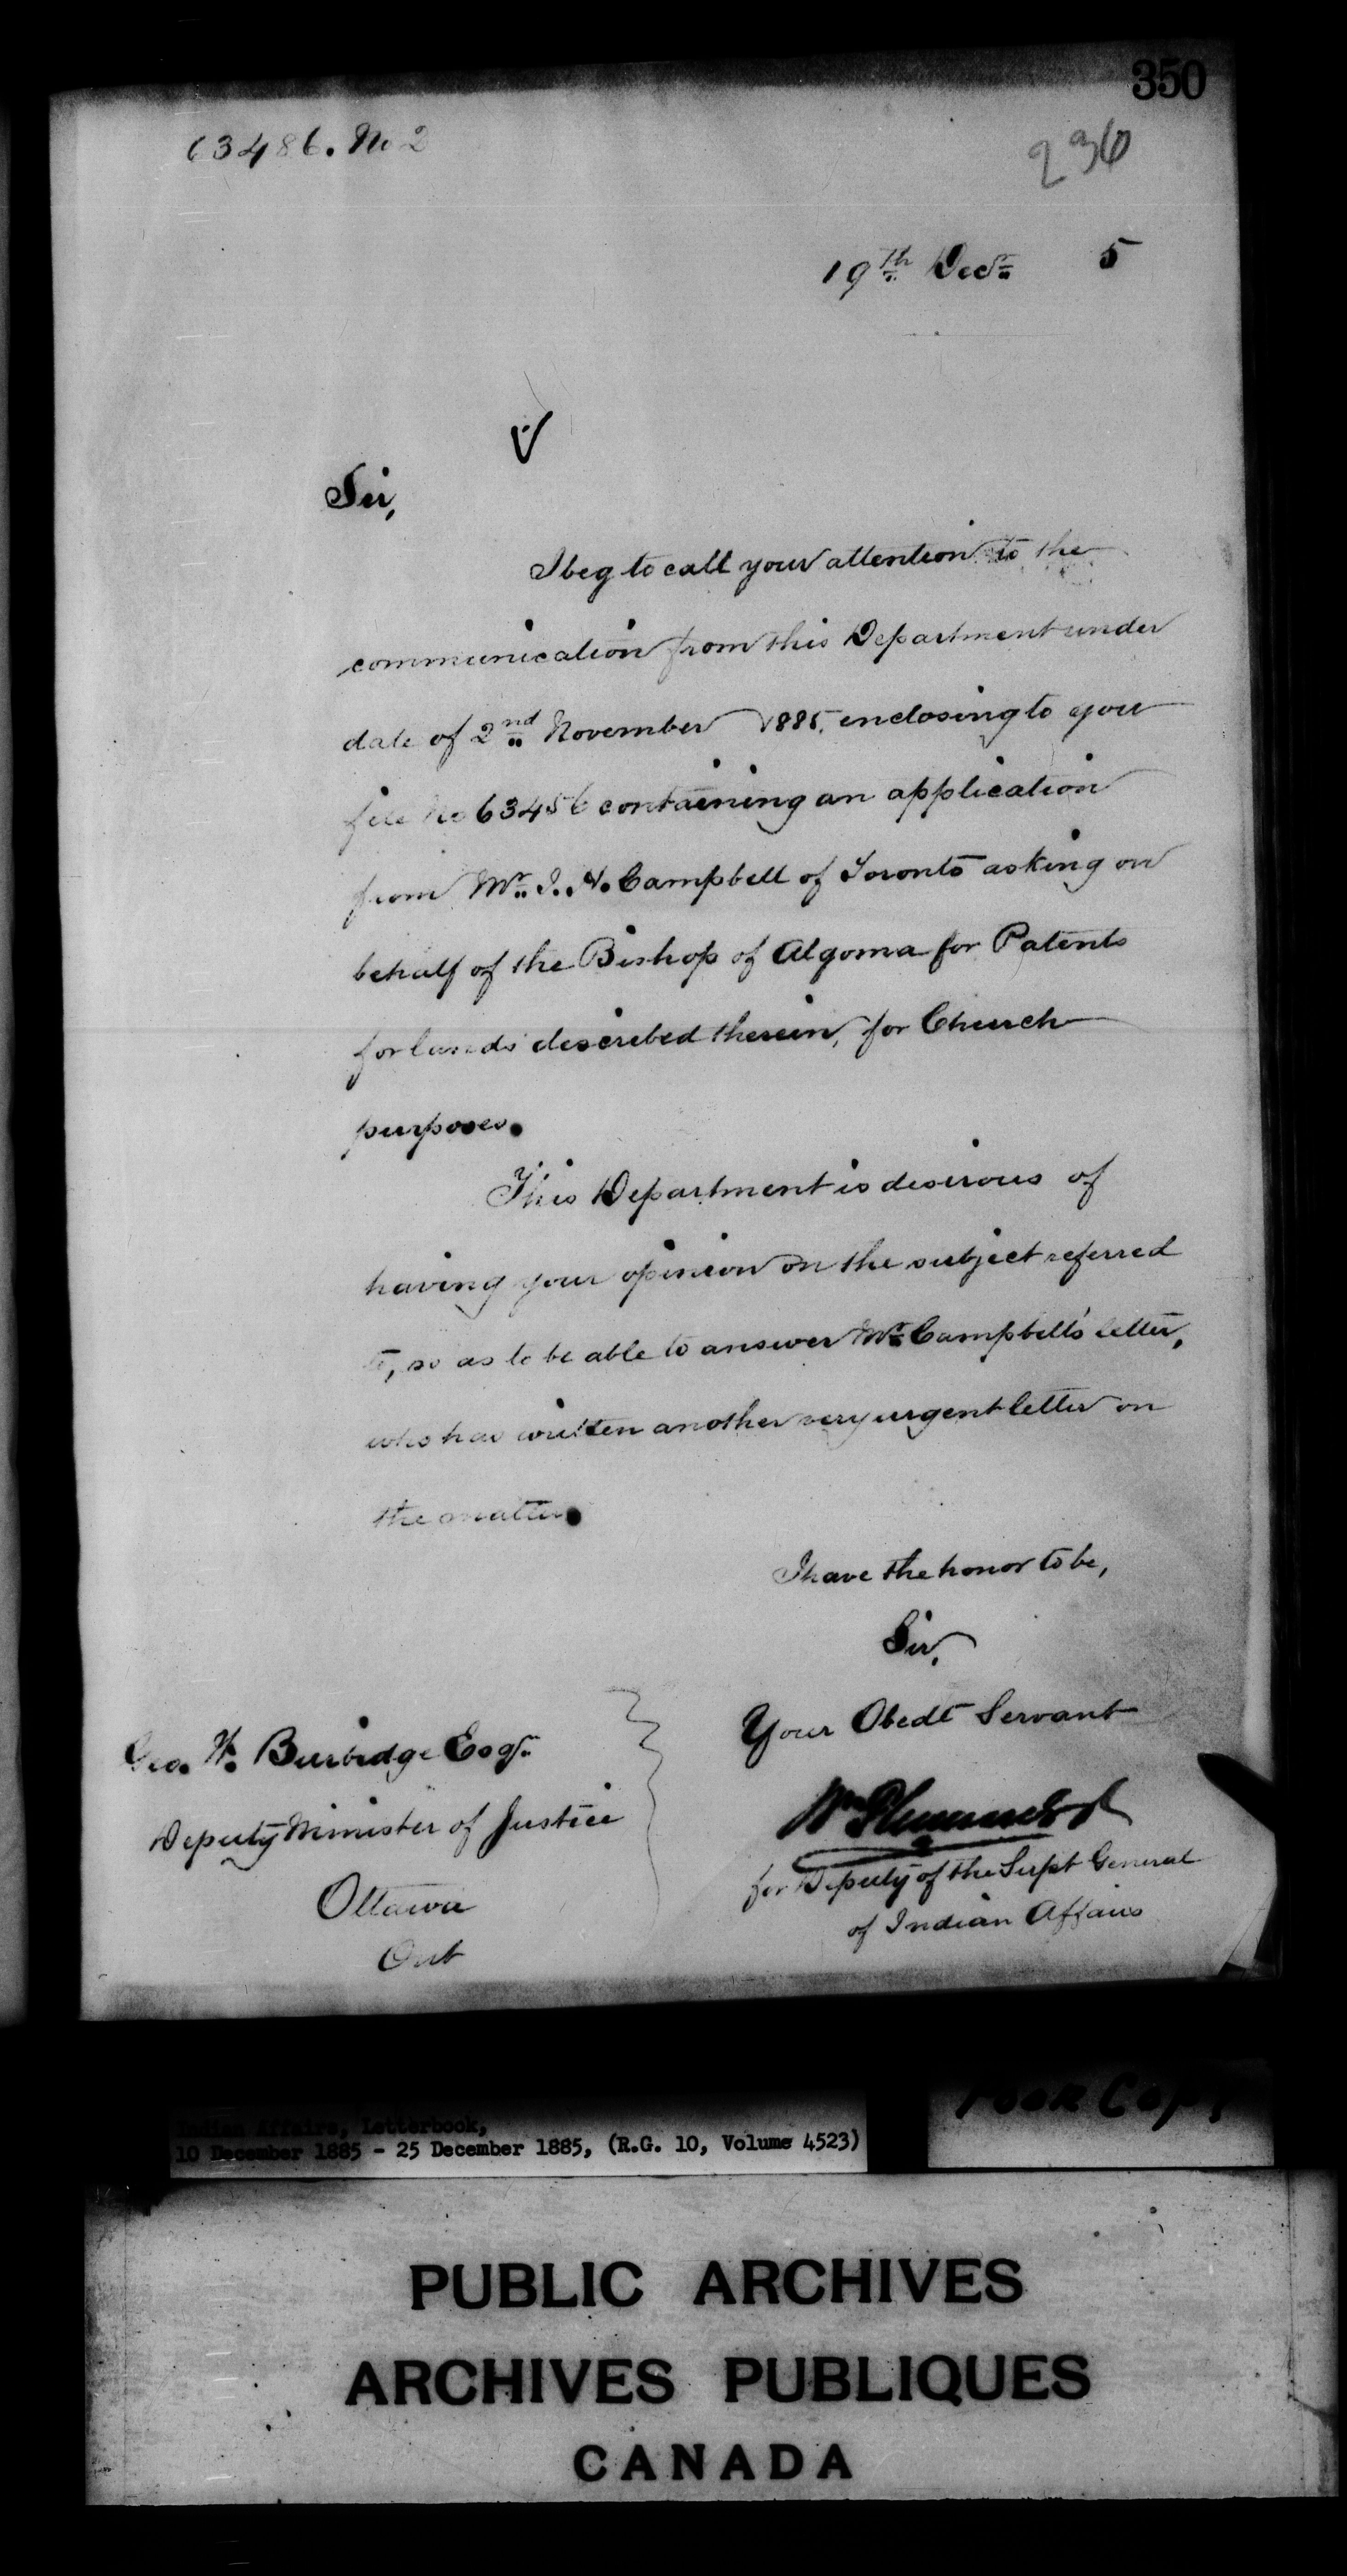 350
63486. No 2
236
19th Decr 5
Sir,
I beg to call your attention to the
communication from this Department under
date of 2nd November 1885, enclosing to you
file No 63456 containing an application
from Mr. I. H. Campbell of Toronto asking on
behalf of the Bishop of Algoma for Patents
for lands described therein, for Church
purposes.
This Department is desirous of
having your opinion on the subject referred
to, so as to be able to answer Mr Campbell's letter,
who has written another very urgent letter on
the matter.
I have the honor to be,
Sir,
Your Obedt Servant
Geo. W. Burbidge Esqr.
Deputy Minister of Justice
Ottawa
Ont
for Deputy of the Supt General
of Indian Affairs
Poor Copy
Indian Affairs, Letterbook,
10 December 1885 - 25 December 1885, (R.G. 10, Volume 4523)
PUBLIC ARCHIVES
ARCHIVES PUBLIQUES
CANADA